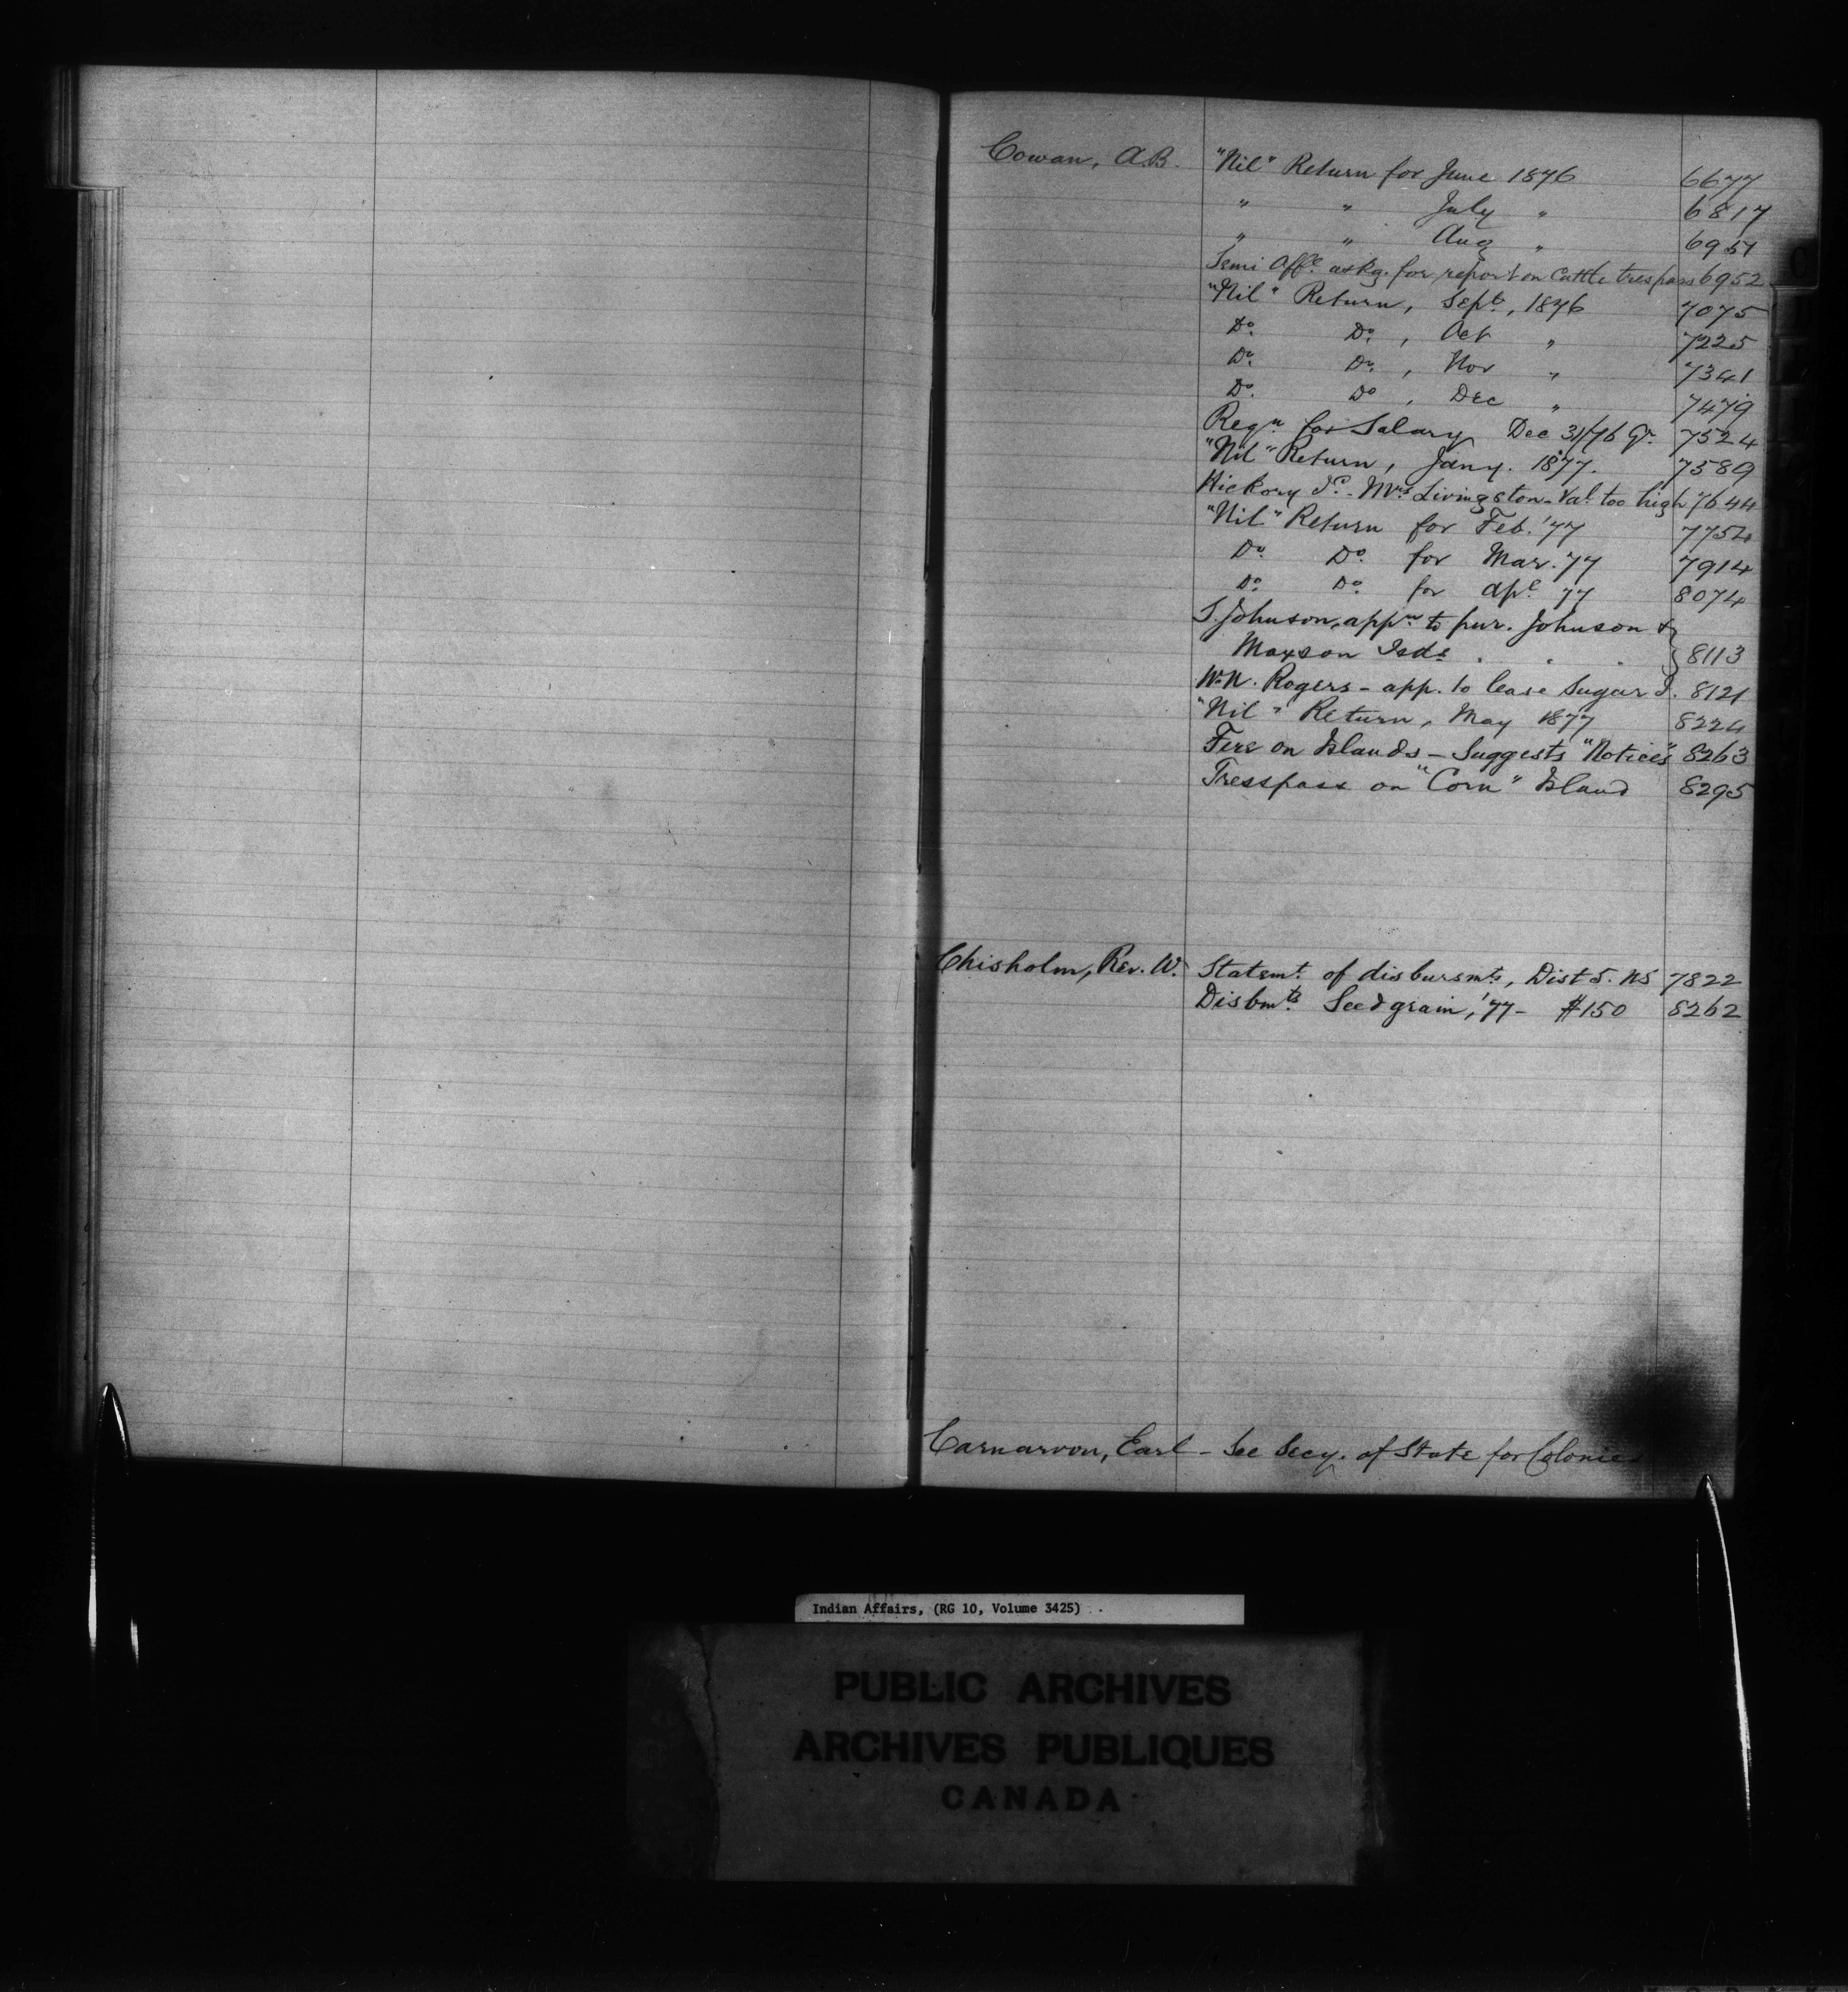 Cowan, A.B. "Nil" Return for June 1876 6677
" " July " 6817
" " Aug " 6951
Semi Offl. askg. for report on Cattle trespass 6952
"Nil" Return, Sept., 1876 7075
Do. Do., Oct " 7225
Do. Do., Nov " 7341
Do. Do, Dec " 7479
Reqn for Salary Dec 31/76 Qr. 7524
"Nil" Return, Jany. 1877. 7589
Hickory Id. - Mrs Livingston - Val. too high 7644
"Nil" Return for Feb. '77 7754
Do. Do. for Mar. '77 7914
Do. Do. for Apl. 77 8074
S. Johnson, appn to pur. Johnson &
Maxson Isds. . . } 8113
W.N. Rogers - app. to lease Sugar I. 8121
"Nil" Return, May 1877 8224
Fire on Islands - Suggests "Notices" 8263
Tresspass on "Corn" Island 8295
Chisholm, Rev. W. Statemt. of disbursmts, Dist 5. NS 7822
Disbmts. Seed grain, '77 - $150 8262
Carnarvon, Earl - See Secy. of State for Colonies
C
Indian Affairs, (RG 10, Volume 3425)
PUBLIC ARCHIVES
ARCHIVES PUBLIQUES
CANADA